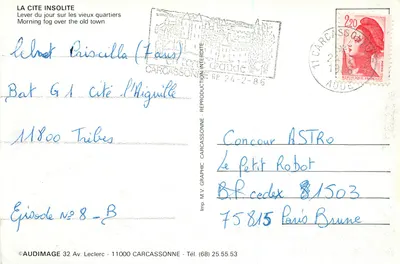 LA CITE INSOLITE
Lever du jour sur les vieux quartiers
Morning fog over the old town
Priscilla (7ans)
Bat G1 Cité l'Aiguille
11800 Trèbes
Episode N° 8 - B
©AUDIMAGE 32 Av. Leclerc - 11000 CARCASSONNE - Tél. (68) 25 55 53
Imp. M.V. GRAPHIC CARCASSONNE REPRODUCTION INTERDITE
CARCASSONNE
2,20
11 CARCASSONNE
AUDE
Concour ASTRO
Le Petit Robot
B.P. cedex 1503
75815 Paris Brune